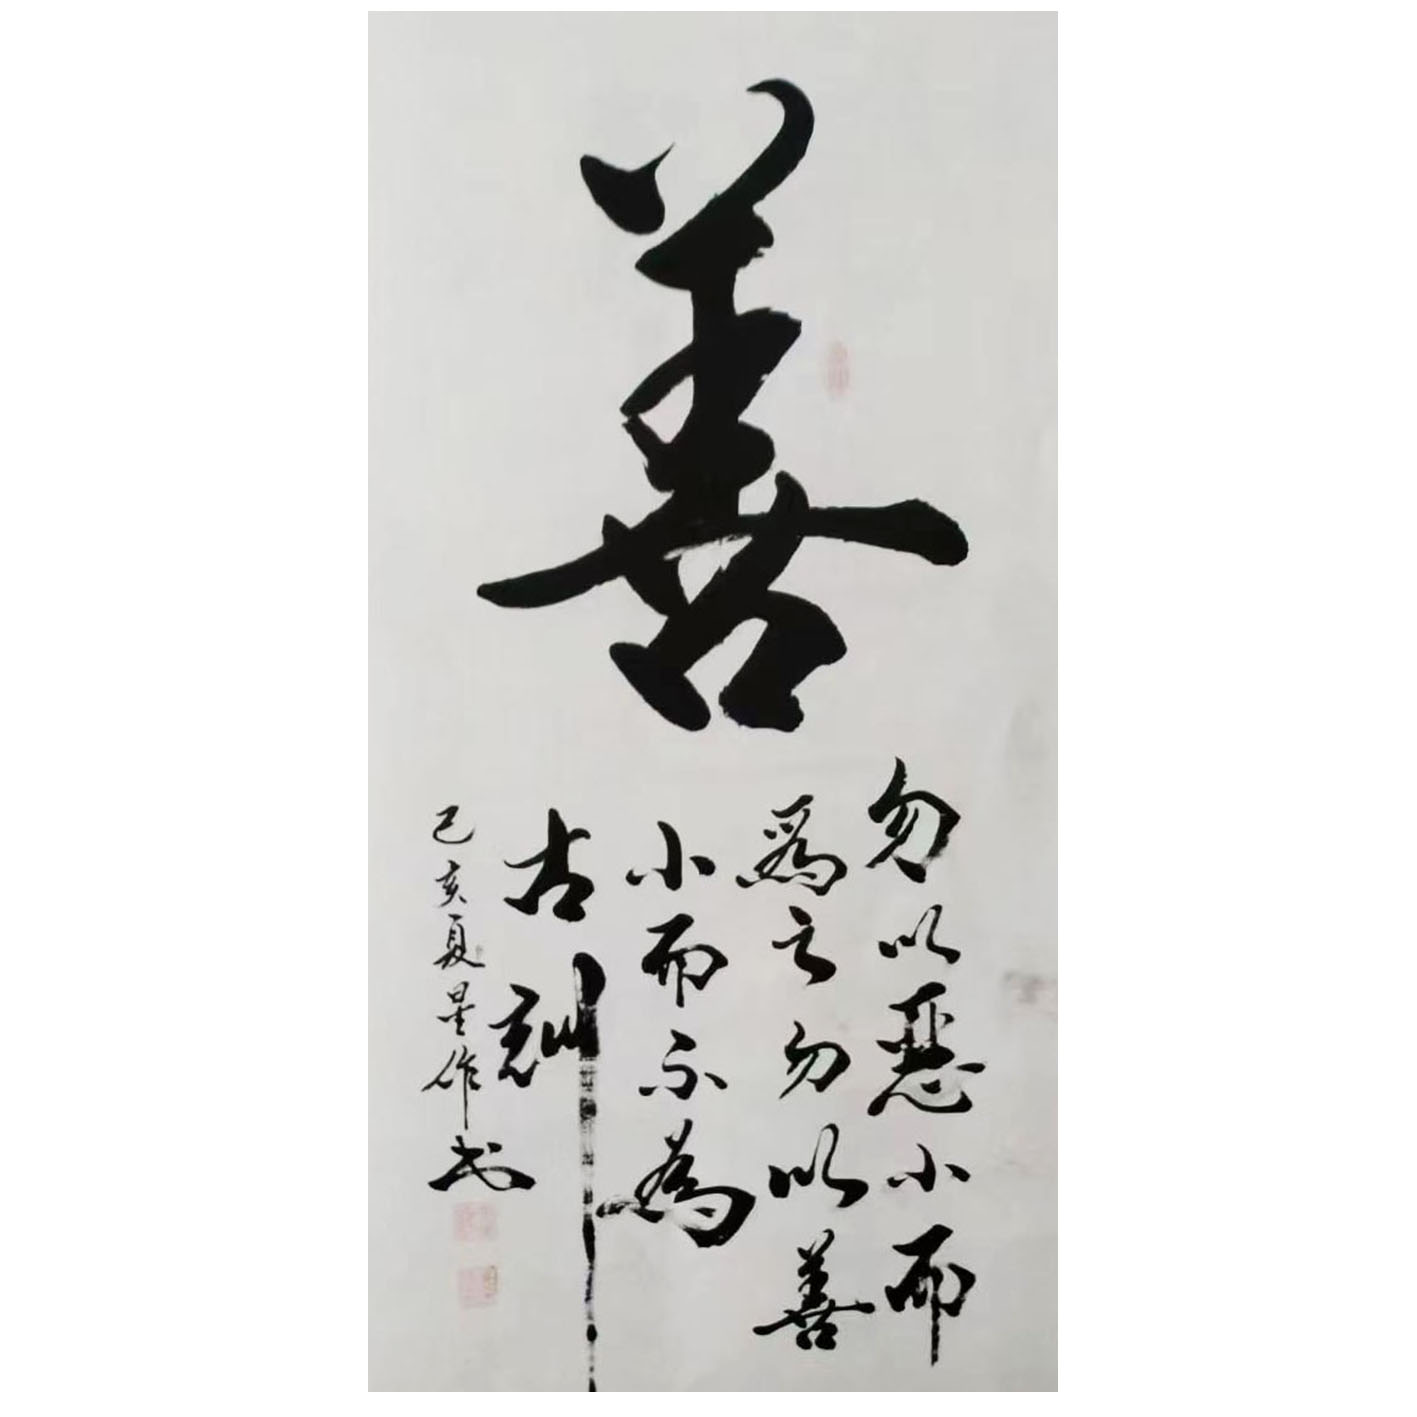 善
勿以惡小而
爲之勿以善
小而不為
古訓
己亥夏星作书